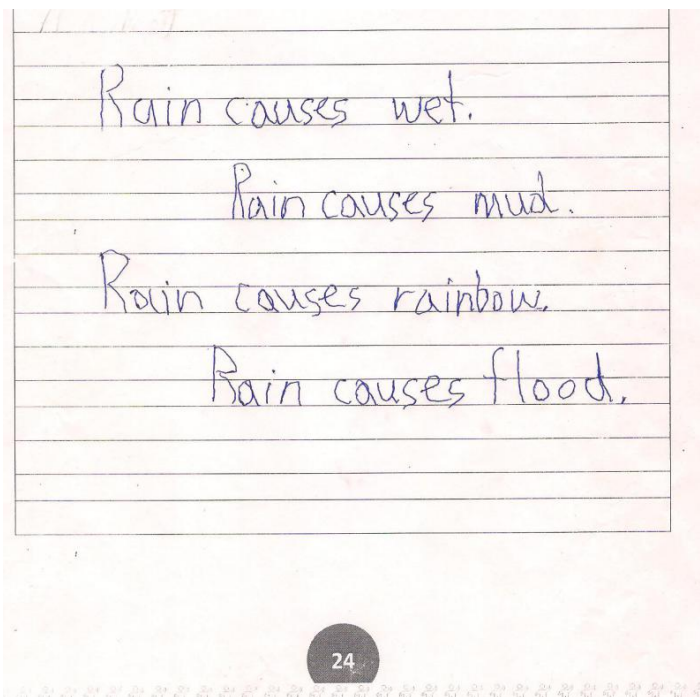 Rain causes wet.
Rain causes mud.
Rain causes rainbow.
Rain causes flood.
24